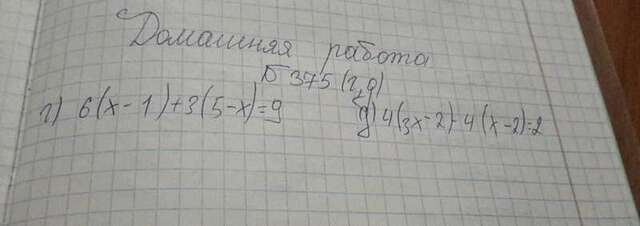 Домашняя работа
Б 375 (г,д)
г) 6(x-1)+3(5-x)=9 д) 4(3x-2)-4(x-2)=2